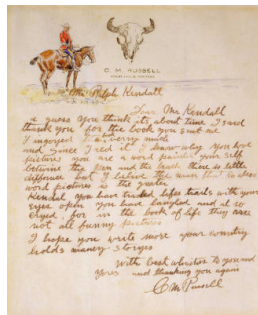 C. M. RUSSELL
GREAT FALLS, MONTANA
Ralph Kendall
Dear Mr Kendall
I guess you think its about time I said
thank you for the book you sent me
I injoyed it very much
and since I red it I know why you love
pictures you are a word painter your self
betwine the pen and the brush there is little
diffrence but I belive the man that makes
word pictures is the greater
Kendal you have traled lifes trails with your
eyes open you have laughed and
cryed for in the book of life they are
not all funny pictures
I hope you write more your country
holds maney storyes
With best whishes to you and
yours and thanking you again
C M Russell